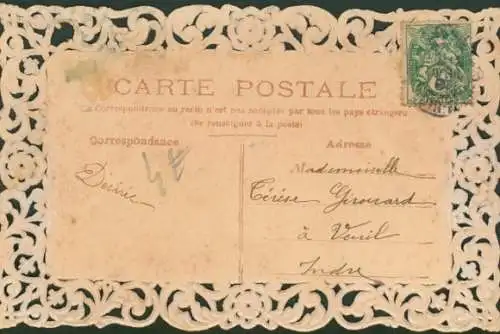 CARTE POSTALE
La Correspondance au recto n'est pas acceptée par tous les pays étrangers
(Se renseigner à la poste)
Correspondance
Adresse
Désirée
4 F
Mademoiselle
Térèse Girouard
à Veuil
Indre